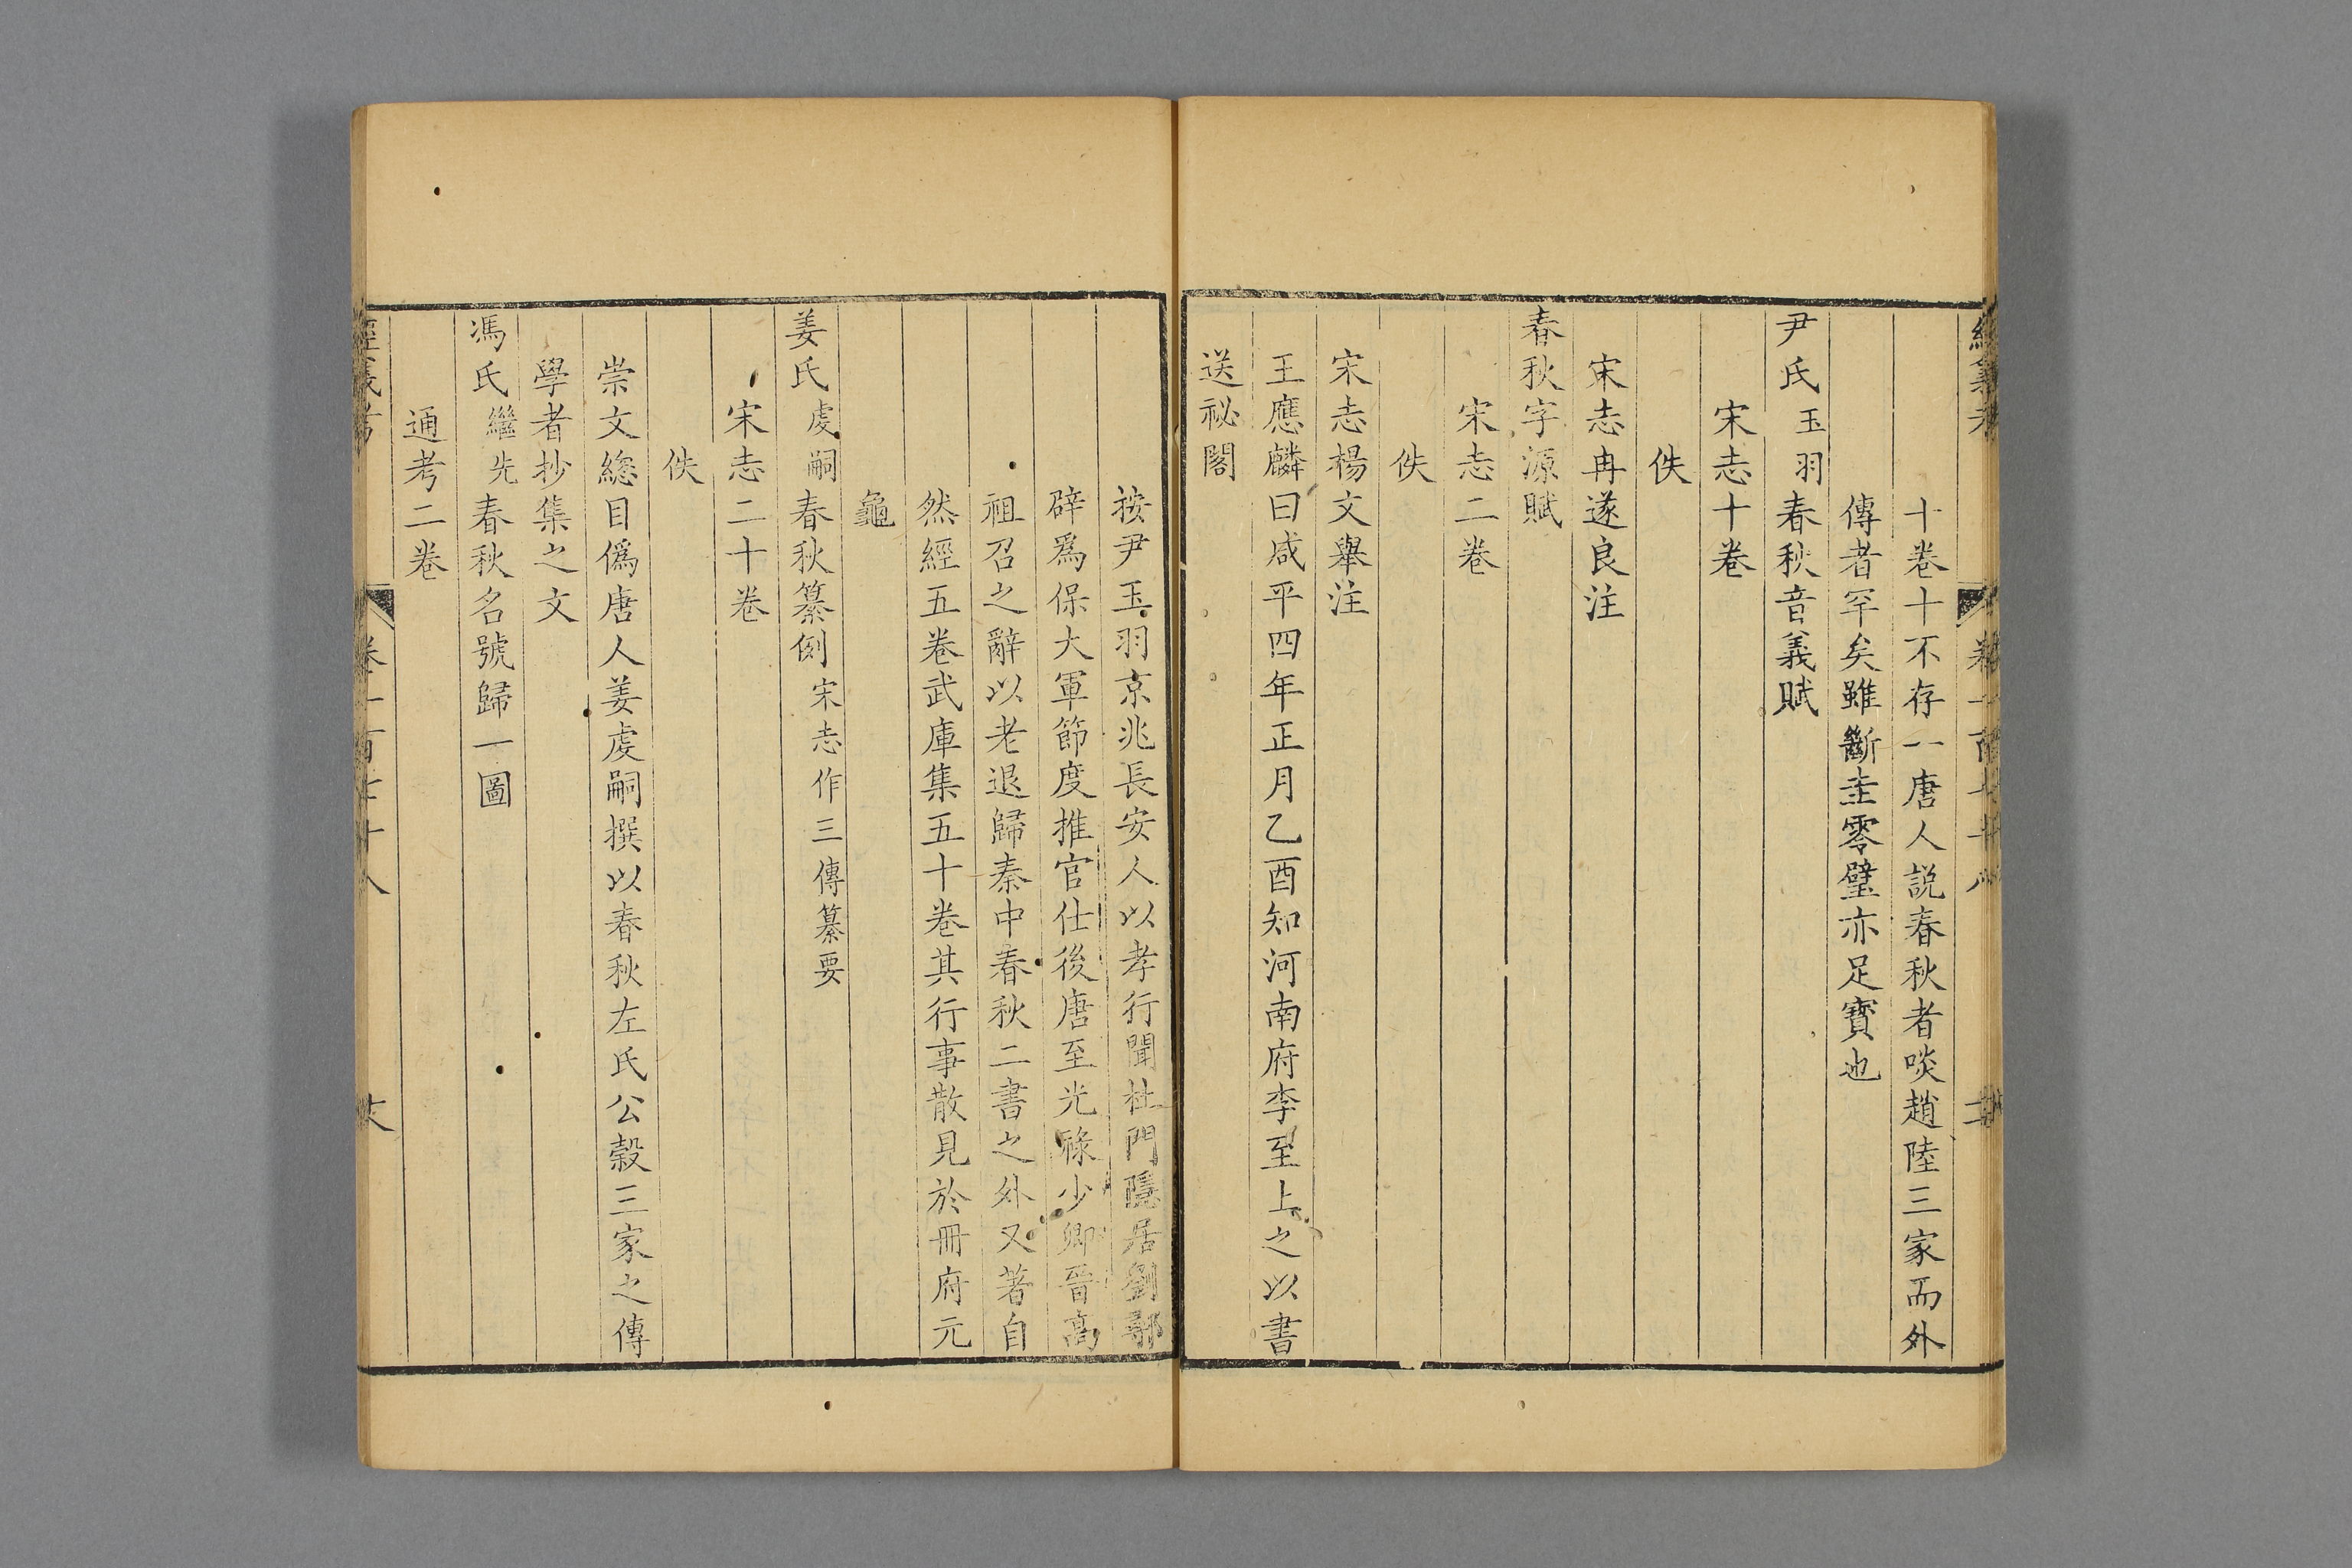 十卷十不存一唐人説春秋者啖趙陸三家而外
傳者罕矣雖斷圭零璧亦足寳也
尹氏玉羽春秋音義賦
宋志十卷
佚
宋志冉遂良注
春秋字源賦
宋志二卷
佚
宋志楊文舉注
王應麟曰咸平四年正月乙酉知河南府李至上之以書
送祕閣
按尹玉羽京兆長安人以孝行聞杜門隱居劉鄩
辟爲保大軍節度推官仕後唐至光祿少卿晉高
祖召之辭以老退歸秦中春秋二書之外又著自
然經五卷武庫集五十卷其行事散見於冊府元
龜
姜氏虔嗣春秋纂例宋志作三傳纂要
宋志二十卷
佚
崇文總目僞唐人姜虔嗣撰以春秋左氏公穀三家之傳
學者抄集之文
馮氏繼先春秋名號歸一圖
通考二卷
經義考 卷一百七十八